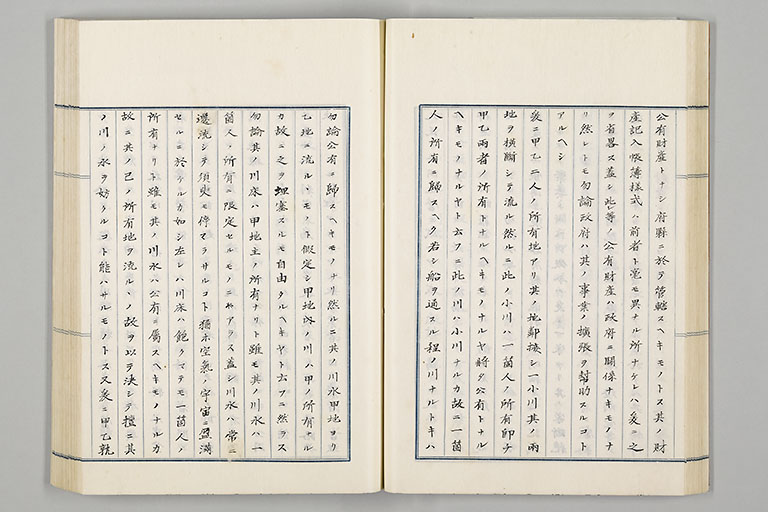 公有財産トナシ府縣ニ於テ管轄スヘキモノトス其ノ財
産記入帳簿様式ハ前者ト毫モ異ナル所ナケレハ爰ニ之
ヲ省畧ス蓋シ此等ノ公有財産ハ政府ニ關係ナキモノナ
リ然レトモ勿論政府ハ其ノ事業ノ擴張ヲ幇助スルコト
アルヘシ
爰ニ甲乙二人ノ所有地アリ其ノ地鄰接シ一小川其ノ兩
地ヲ横斷シテ流ル然ルニ此ノ小川ハ一箇人ノ所有即チ
甲乙兩者ノ所有トナルヘキモノナルヤ将タ公有トナル
ヘキモノナルヤト云フニ此ノ川ハ小川ナルカ故ニ一箇
人ノ所有ニ歸スヘク若シ船ヲ通スル程ノ川ナルトキハ
勿論公有ニ歸スヘキモノナリ然ルニ其ノ川水甲地ヨリ
乙地ニ流ルヽモノト假定シ甲地内ノ川ハ甲ノ所有ナル
カ故ニ之ヲ埋塞スルモ自由タルヘキヤト云フニ然ラス
勿論其ノ川床ハ甲地主ノ所有ナリト雖モ其ノ川水ハ一
箇人ノ所有ニ限定セルモノニアラス蓋シ川水ハ常ニ
還流シテ須臾モ停マラサルコト猶ホ空氣ノ宇宙ニ盈満
セルニ於ケルカ如シ左レハ川床ハ飽クマテモ一箇人ノ
所有ナリト雖モ其ノ川水ハ公有ニ屬スヘキモノナルカ
故ニ其ノ己ノ所有地ヲ流ルヽノ故ヲ以テ決シテ擅ニ其
ノ川ノ水ヲ妨クルコト能ハサルモノトス又爰ニ甲乙孰